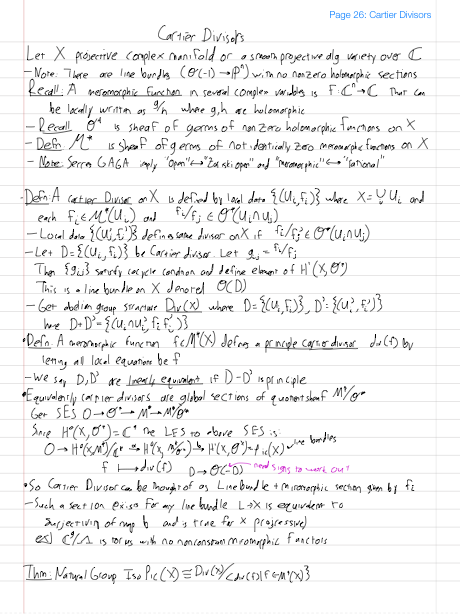 Page 26: Cartier Divisors
Cartier Divisors
Let X projective complex manifold or a smooth projective alg variety over ℂ
- Note: There are line bundles (O(-1) → ℙⁿ) with no nonzero holomorphic sections
Recall: A meromorphic function in several complex variables is f: ℂⁿ → ℂ that can
be locally written as g/h where g,h are holomorphic
- Recall O* is sheaf of germs of non zero holomorphic functions on X
- Defn: M* is sheaf of germs of not identically zero meromorphic functions on X
- Note: Serre's GAGA imply "open" ↔ "Zariski open" and "meromorphic" ↔ "rational"
• Defn: A Cartier Divisor on X is defined by local data {(Uᵢ, fᵢ)} where X = ∪ Uᵢ and
each fᵢ ∈ M*(Uᵢ) and fᵢ/fⱼ ∈ O*(Uᵢ∩Uⱼ)
- Local data {(Uⱼ, fⱼ')} defines same divisor on X if fᵢ/fⱼ' ∈ O*(Uᵢ∩Uⱼ)
- Let D = {(Uᵢ, fᵢ)} be Cartier divisor. Let gᵢⱼ = fᵢ/fⱼ
Then {gᵢⱼ} satisfy cocycle condition and define element of H¹(X, O*)
This is a line bundle on X denoted O(D)
- Get abelian group structure Div(X) where D = {(Uᵢ, fᵢ)}, D' = {(Uᵢ', fᵢ')}
here D+D' = {(Uᵢ∩Uᵢ', fᵢ fᵢ')}
• Defn: A meromorphic function f ∈ M*(X) defines a principle Cartier divisor div(f) by
letting all local equations be f
- We say D, D' are linearly equivalent if D - D' is principle
• Equivalently Cartier divisors are global sections of quotient sheaf M*/O*
Get SES 0 → O* → M* → M*/O*
Since H⁰(X, O*) = ℂ* the LES to above SES is:
0 → H⁰(X, M*)/ℂ* → H⁰(X, M*/O*) →ᵇ H¹(X, O*) = Pic(X) line bundles
f ↦ div(f) D → O(-D) need signs to work out
• So Cartier Divisor can be thought of as Line bundle + meromorphic section given by fᵢ
- Such a section exists for any line bundle L → X is equivalent to
surjectivity of map b and is true for X projective
ex) is torus with no nonconstant meromorphic functions
Thm: Natural Group Iso Pic(X) ≡ Div(X)/<div(f) | f ∈ M*(X)}